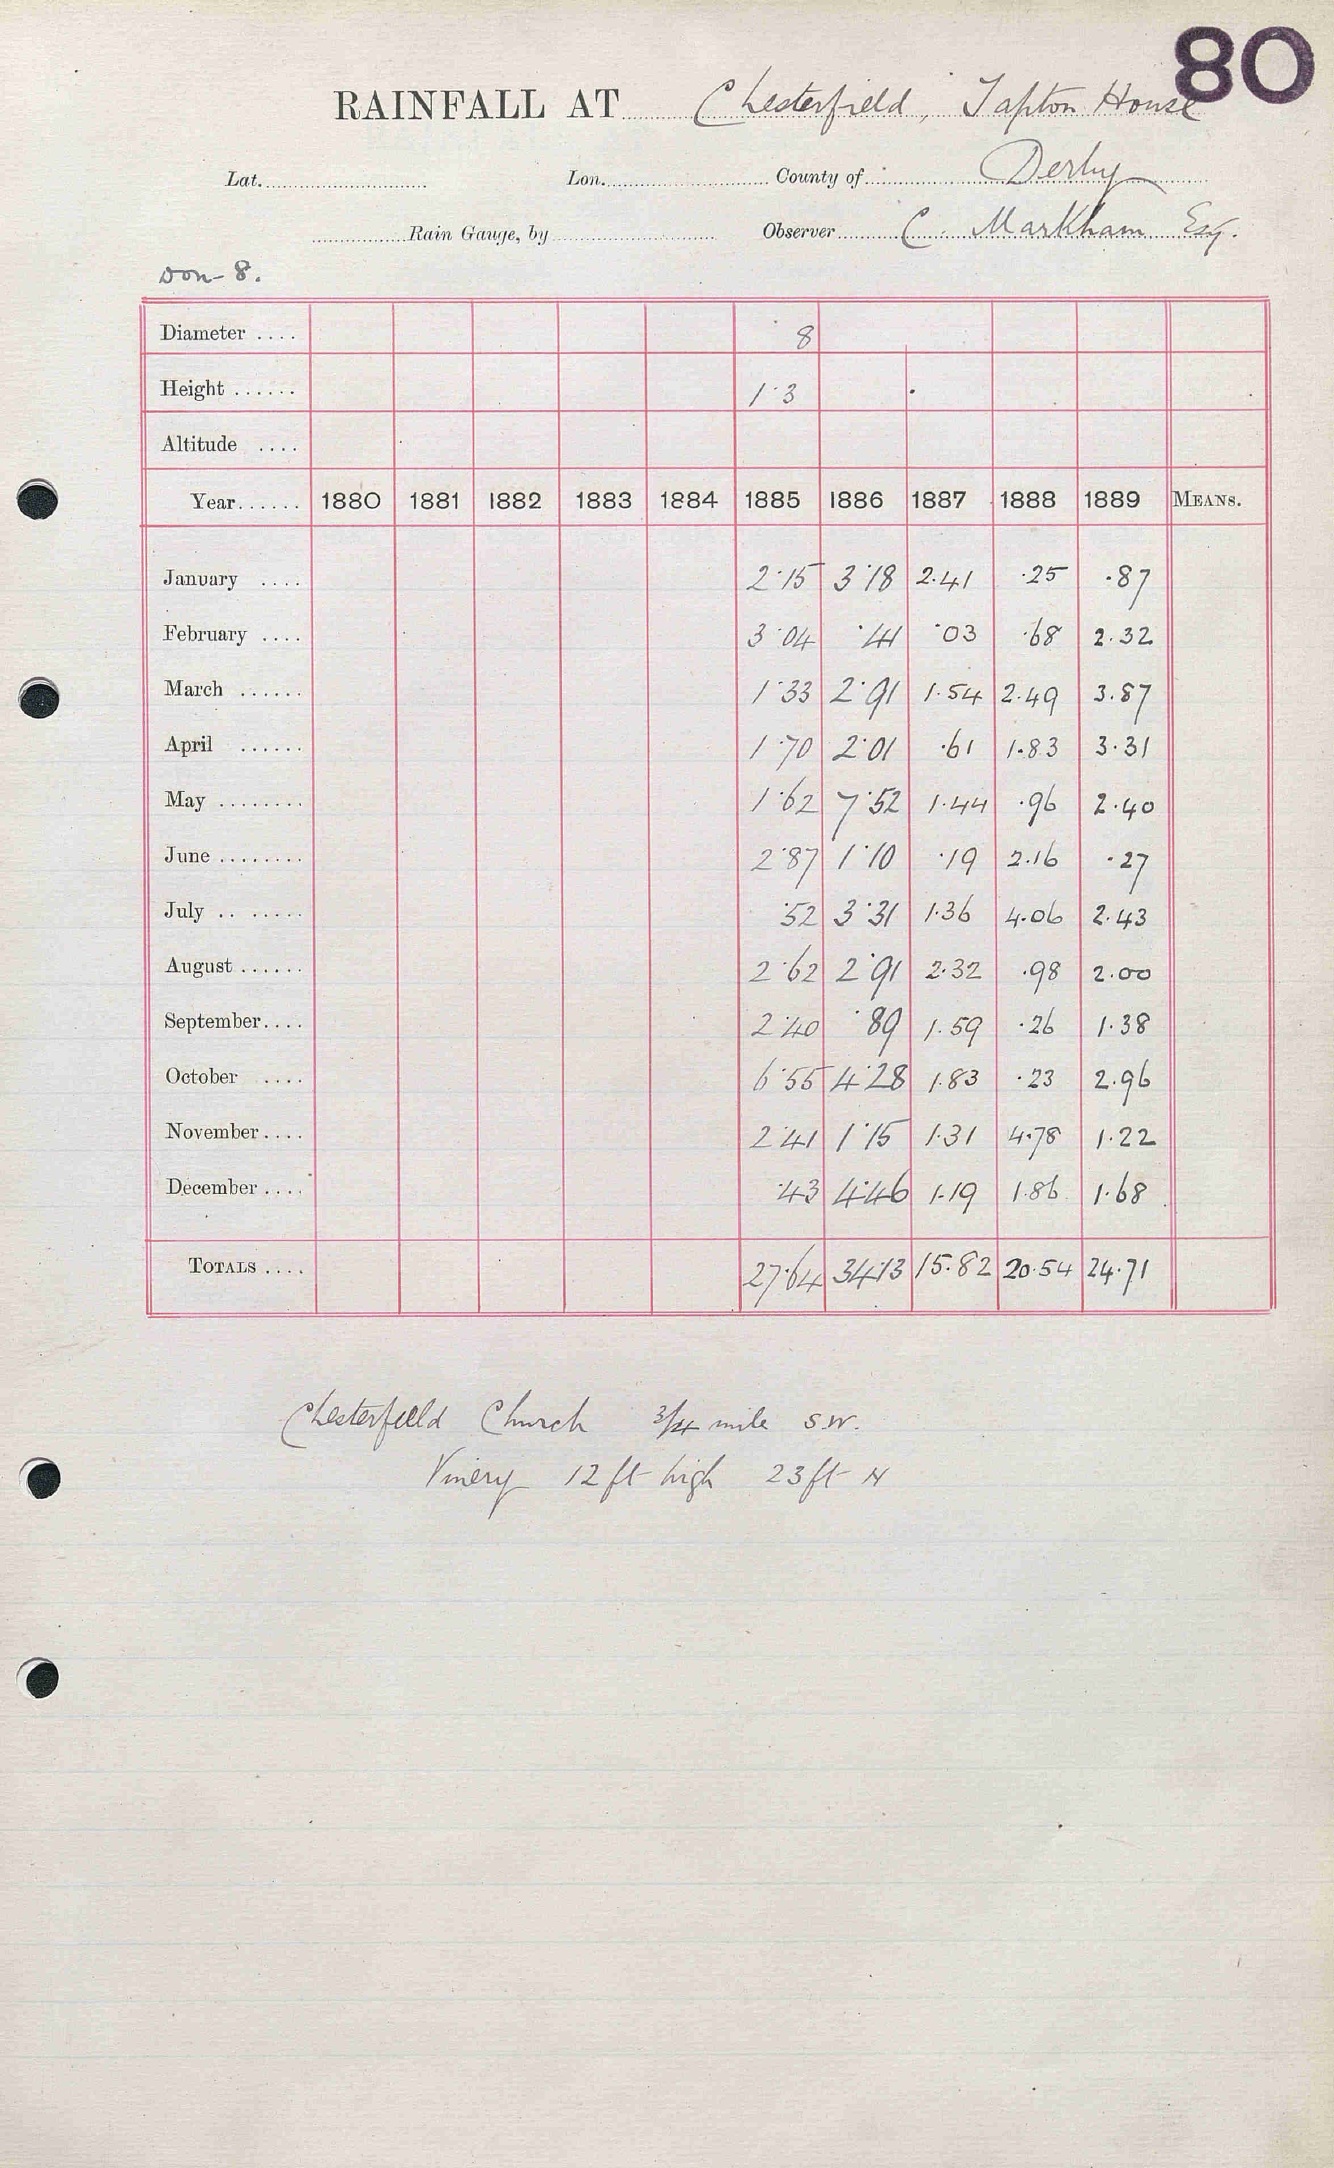 80
RAINFALL AT Chesterfield, Tapton House
Lat. Lon. County of Derby
Rain Gauge, by Observer C. Markham Esq.
Don 8.
Diameter .... 8
Height ...... 1·3
Altitude ....
Year...... 1880 1881 1882 1883 1884 1885 1886 1887 1888 1889 MEANS.
January .... 2·15 3·18 2.41 ·25 ·87
February .... 3·04 ·41 ·03 ·68 2.32
March ...... 1·33 2·91 1.54 2.49 3.87
April ...... 1·70 2·01 ·61 1.83 3.31
May ........ 1·62 7·52 1.44 ·96 2.40
June ........ 2·87 1·10 ·19 2.16 ·27
July .. ..... ·52 3·31 1.36 4.06 2.43
August ...... 2·62 2·91 2.32 ·98 2.00
September.... 2·40 ·89 1.59 ·26 1.38
October .... 6·55 4·28 1.83 ·23 2.96
November.... 2·41 1·15 1.31 4.78 1.22
December .... ·43 4·46 1.19 1.86 1.68
TOTALS .... 27·64 34·13 15.82 20.54 24.71
Chesterfield Church 3/4 mile S.W.
Vinery 12 ft high 23 ft N